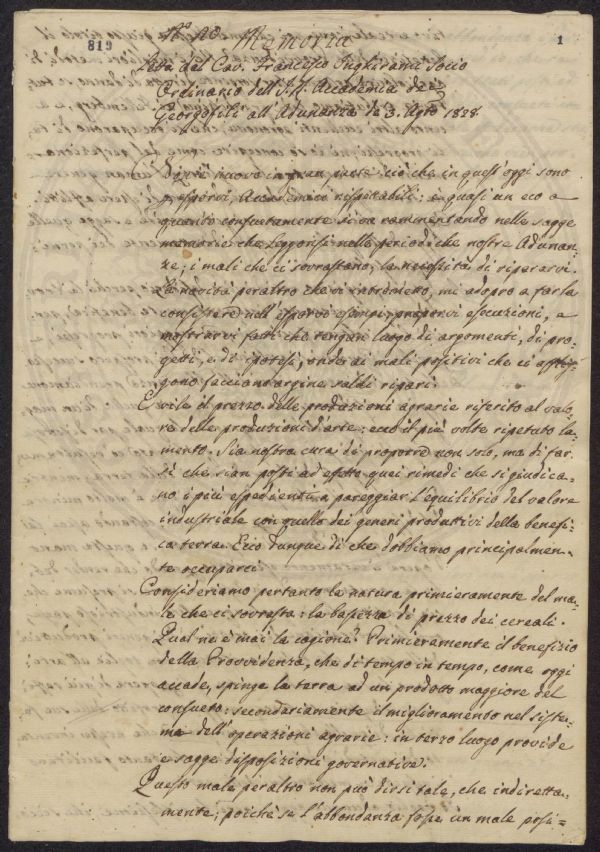 819
1
N.° 20. Memoria
Letta dal Cav. Francesco Inghirami Socio
Ordinario dell'I. R. Accademia dei
Georgofili all'Adunanza de 3. Agto 1828.
nuovo in gran parte ciò che in quest'oggi sono
p. esporvi, Accademici rispettabili: è quasi un eco a
quanto consuetamente si va rammentando nelle sagge
memorie che leggonsi nelle periodiche nostre Adunan-
ze; i mali che ci sovrastano, la necessità di ripararvi.
La novità peraltro che vi intrometto, mi adopro a farla
consistere nell'esporvi esempi, proporvi esecuzioni, a
mostrarvi fatti che tengan luogo di argomenti, di pro-
getti, e di ipotesi, onde ai mali positivi che ci afflig-
gono facciano argine saldi ripari.
È vile il prezzo delle produzioni agrarie riferito al valo-
re delle produzioni d'arte: ecco il più volte ripetuto la-
mento. Sia nostra cura di proporre non solo, ma di far
sì che sian posti ad effetto quei rimedi che si giudica-
no i più espedienti a pareggiar l'equilibrio del valore
industriale con quello dei generi produttivi della benefi-
ca terra. Ecco dunque di che dobbiamo principalmen-
te occuparci
Consideriamo pertanto la natura primieramente del ma-
le che ci sovrasta: la bassezza di prezzo dei cereali.
Qual ne è mai la cagione? Primieramente il benefizio
della Provvidenza, che di tempo in tempo, come oggi
accade, spinge la terra ad un prodotto maggiore del
consueto: secondariamente il miglioramento nel siste-
ma dell'operazioni agrarie: in terzo luogo provide
e sagge disposizioni governative.
Questo male peraltro non può dirsi tale, che indiretta-
mente; poichè se l'abbondanza fosse un male posi-